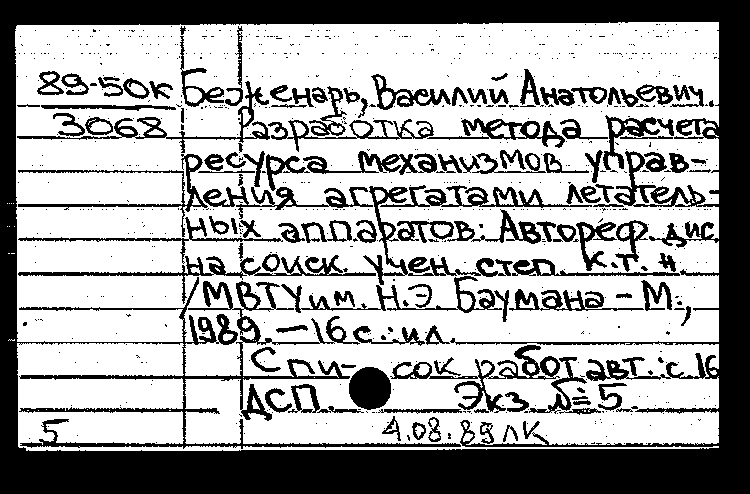 89-50к Беженарь, Василий Анатольевич.
3068 Разработка метода расчета
ресурса механизмов управ-
ления агрегатами летатель-
ных аппаратов: Автореф. дис.
на соиск. учен. степ. к.т.н.
/МВТУ им. Н.Э. Баумана - М.,
1989. - 16 с.: ил.
Спи- сок работ авт.: с. 16
ДСП. Экз. № 5.
5 4.08.89 ЛК